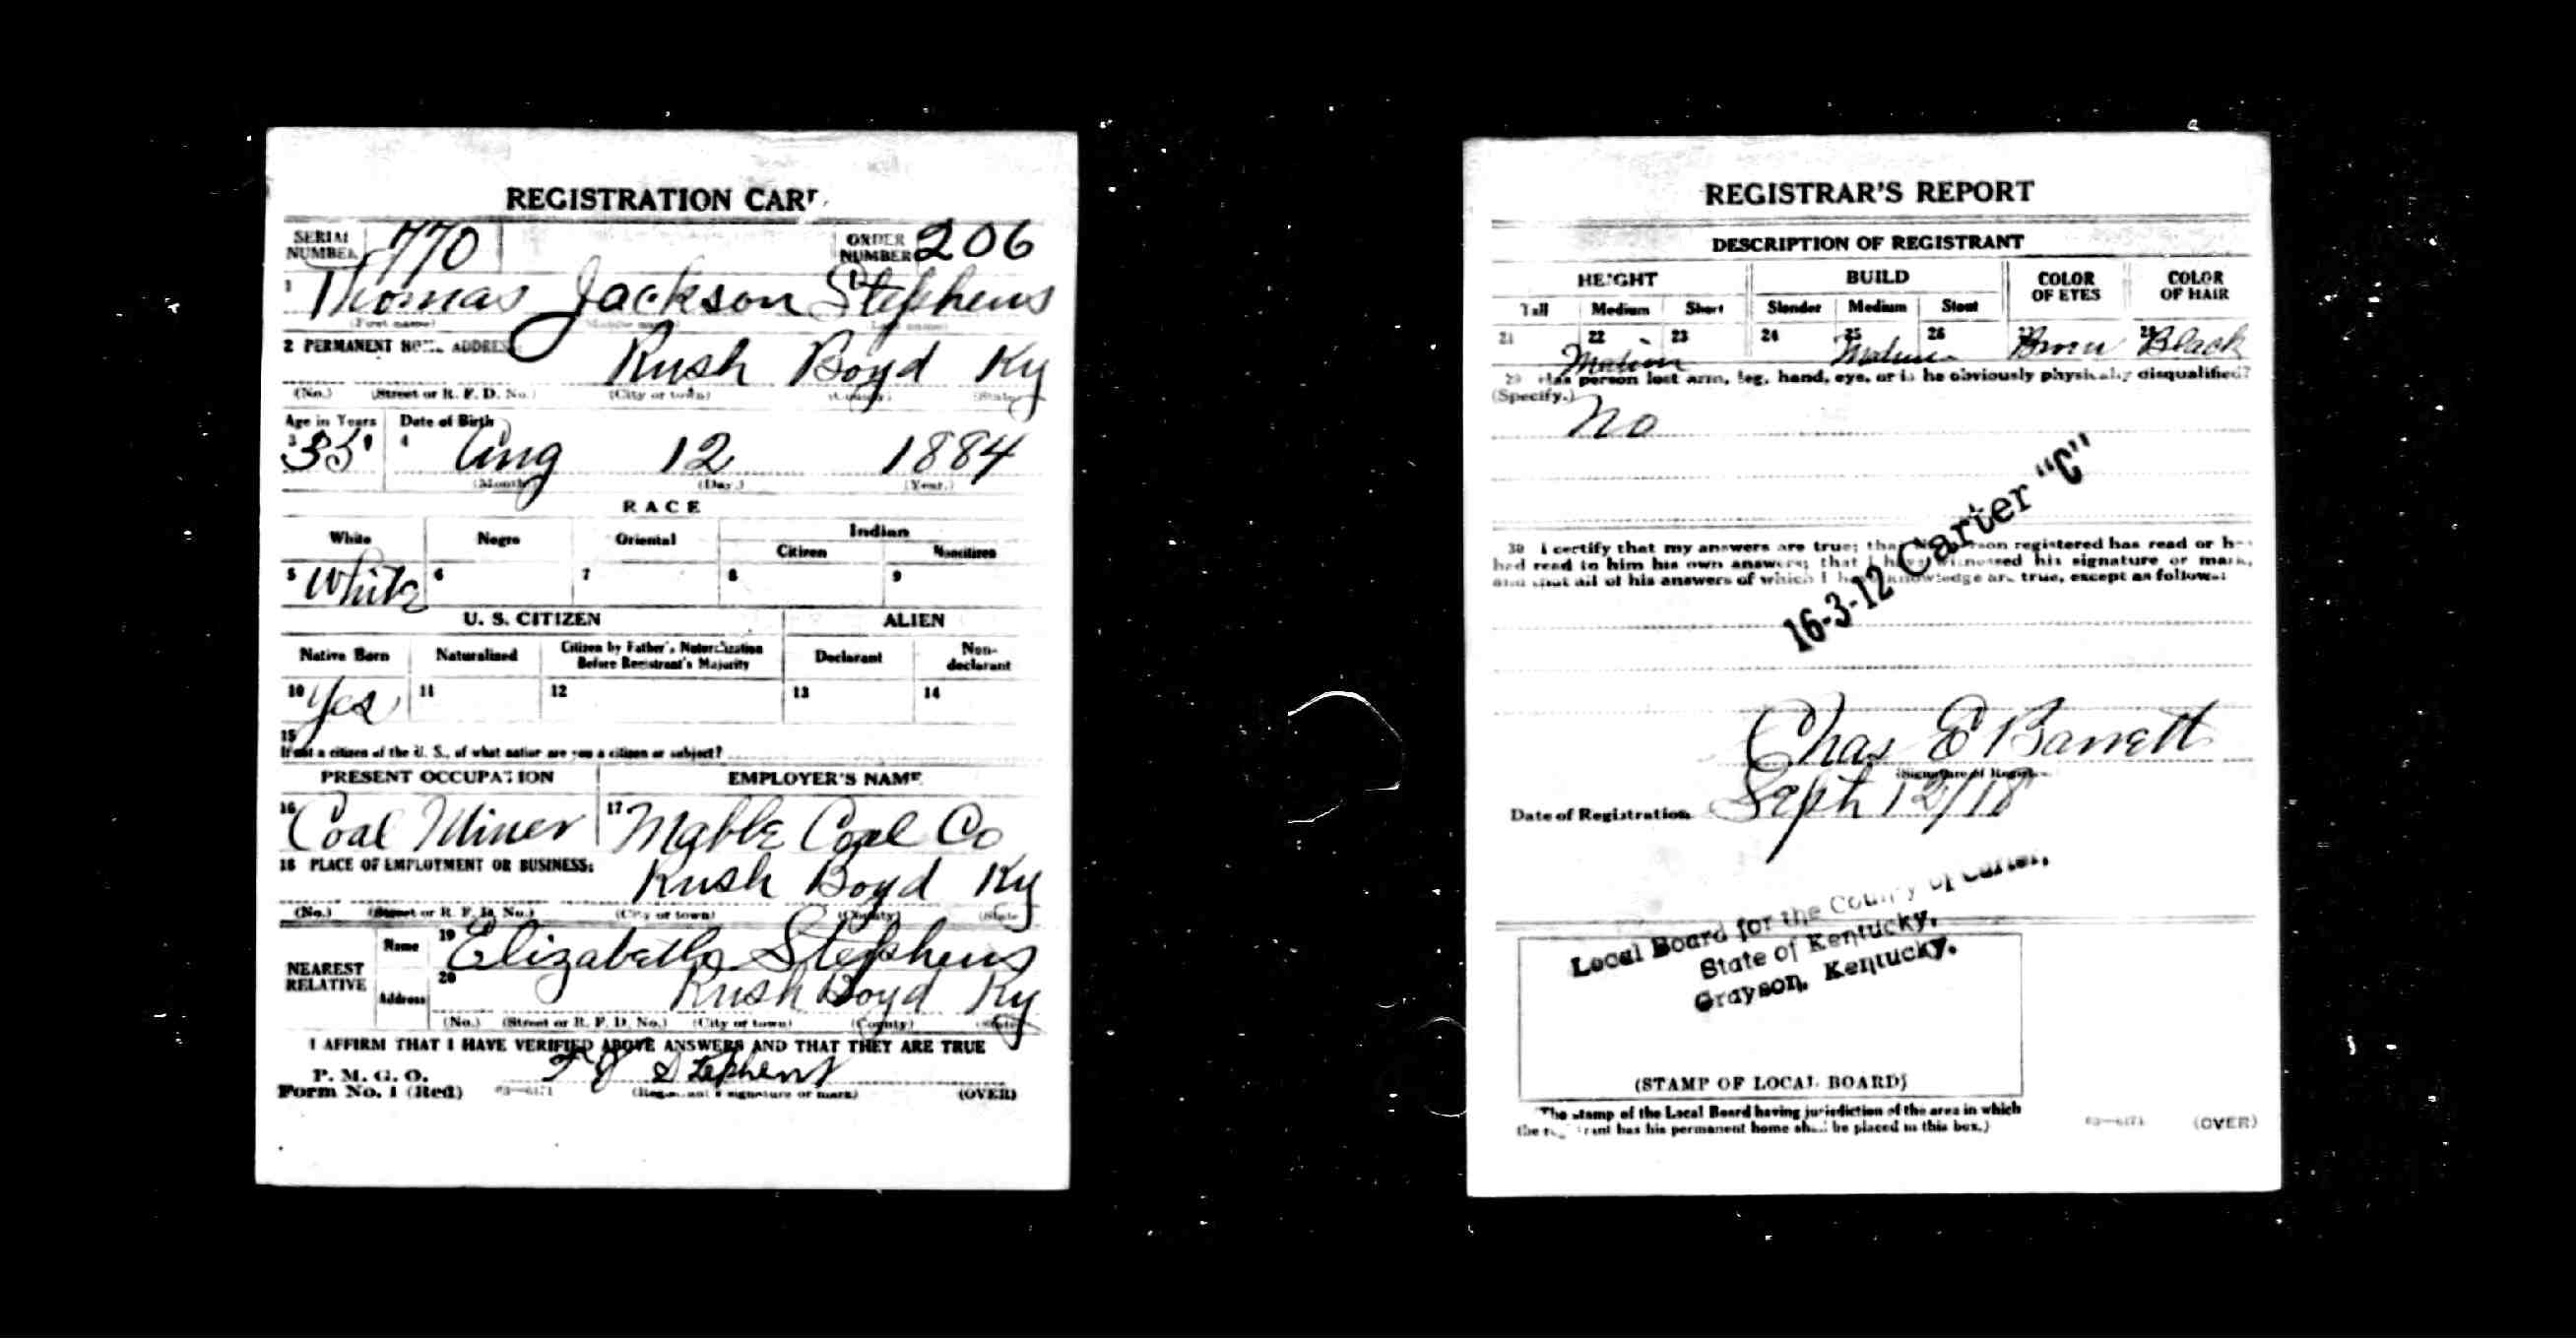 REGISTRATION CARD
SERIAL NUMBER 770 ORDER NUMBER 206
1 Thomas Jackson Stephens
(First name) (Middle name) (Last name)
2 PERMANENT HOME ADDRESS: Rush Boyd Ky
(No.) (Street or R. F. D. No.) (City or town) (County) (State)
Age in Years Date of Birth
3 35 4 Aug 12 1884
(Month) (Day.) (Year.)
RACE
White Negro Oriental Indian
Citizen Noncitizen
5 White 6 7 8 9
U. S. CITIZEN ALIEN
Native Born Naturalized Citizen by Father's Naturalization Before Registrant's Majority Declarant Non-declarant
10 Yes 11 12 13 14
15
If not a citizen of the U. S., of what nation are you a citizen or subject?
PRESENT OCCUPATION EMPLOYER'S NAME
16 Coal Miner 17 Mable Coal Co
18 PLACE OF EMPLOYMENT OR BUSINESS:
Rush Boyd Ky
(No.) (Street or R. F. D. No.) (City or town) (County) (State)
NEAREST RELATIVE
Name 19 Elizabeth Stephens
Address 20 Rush Boyd Ky
(No.) (Street or R. F. D. No.) (City or town) (County) (State)
I AFFIRM THAT I HAVE VERIFIED ABOVE ANSWERS AND THAT THEY ARE TRUE
P. M. G. O.
Form No. 1 (Red) 03—6171 T J Stephens
(Registrant's signature or mark) (OVER)
REGISTRAR'S REPORT
DESCRIPTION OF REGISTRANT
HEIGHT BUILD COLOR OF EYES COLOR OF HAIR
Tall Medium Short Slender Medium Stout
21 22 23 24 25 26 27 28
Medium Medium Brown Black
29 Has person lost arm, leg, hand, eye, or is he obviously physically disqualified?
(Specify.) No
16-3-12 Carter "C"
30 I certify that my answers are true; that the person registered has read or has
had read to him his own answers; that I have witnessed his signature or mark,
and that all of his answers of which I have knowledge are true, except as follows:
Chas E Barrett
(Signature of Registrar)
Date of Registration Sept 12/18
Local Board for the County of Carter,
State of Kentucky,
Grayson, Kentucky.
(STAMP OF LOCAL BOARD)
(The stamp of the Local Board having jurisdiction of the area in which
the registrant has his permanent home shall be placed in this box.)
03—6171 (OVER)